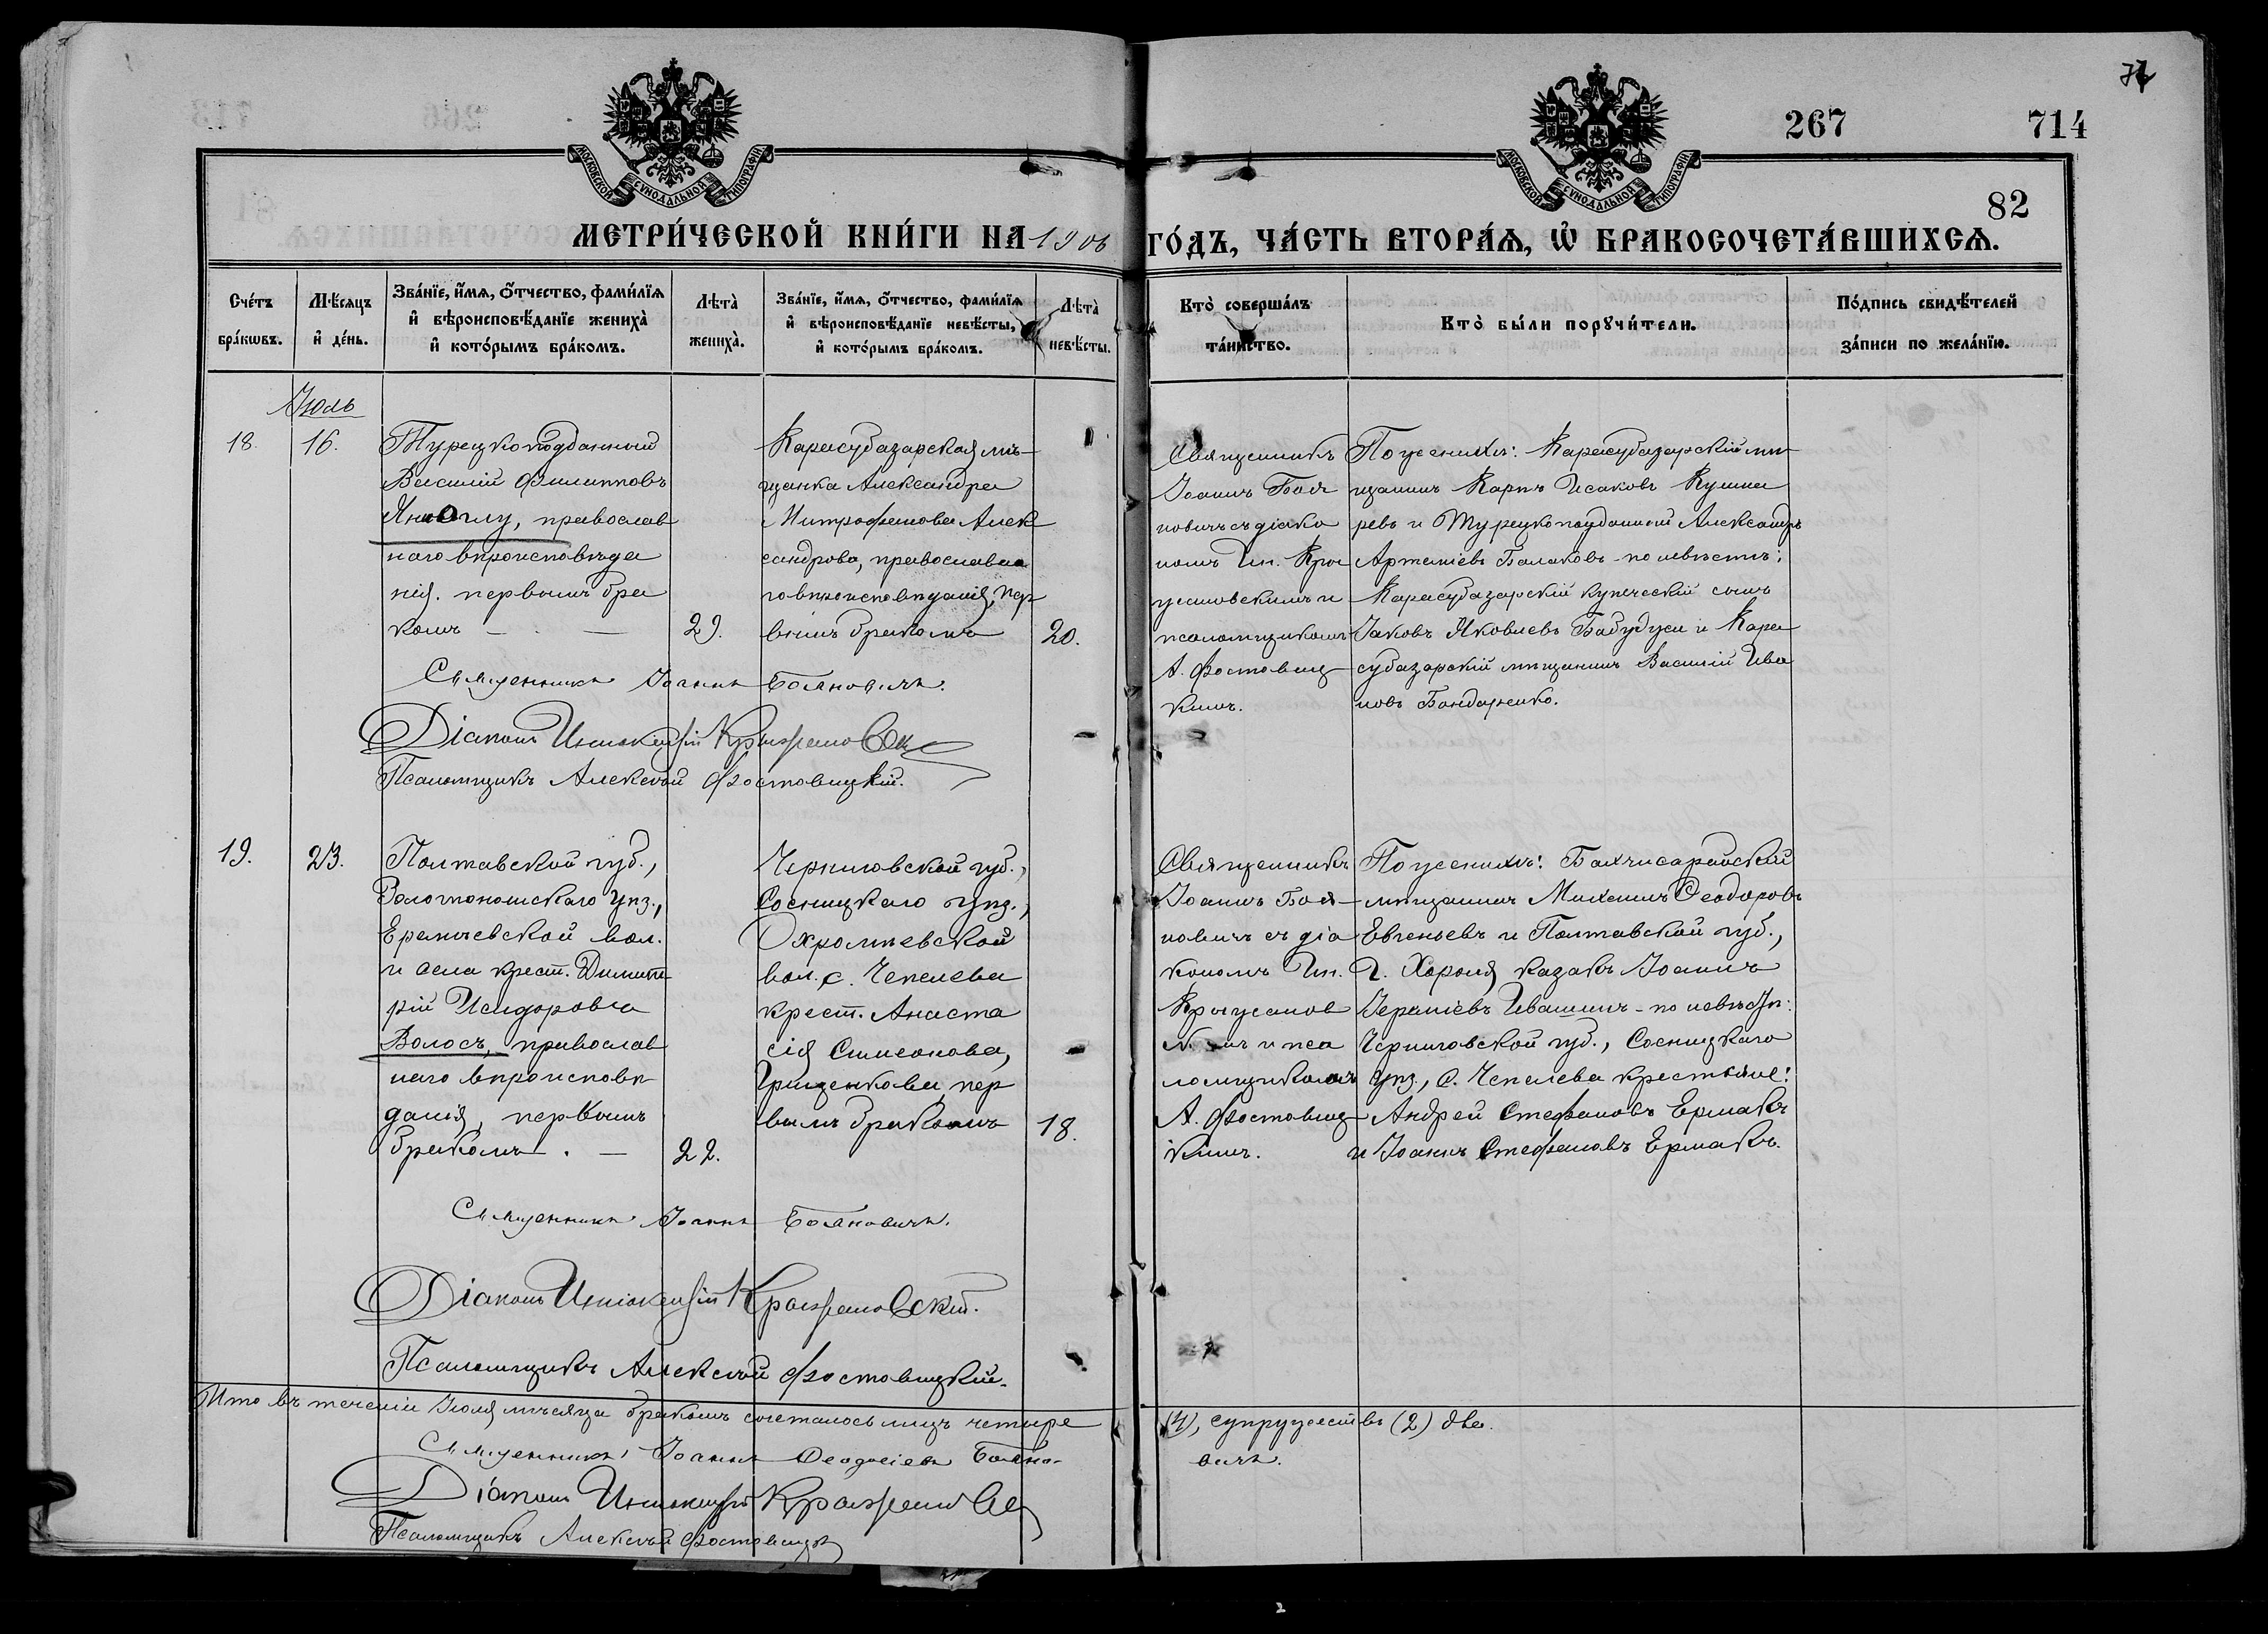 267 714
82
МОСКОВСКОЙ СУНОДАЛЬНОЙ ТИПОГРАФІИ
МОСКОВСКОЙ СУНОДАЛЬНОЙ ТИПОГРАФІИ
МЕТРИ́ЧЕСКОЙ КНИ́ГИ НА 1906 ГО́ДЪ, ЧА́СТЬ ВТОРА́Ѧ, Ѽ БРАКОСОЧЕТА́ВШИХСѦ.
Сче́тъ
бра́кѡвъ.
Мѣ́сяцъ
и҆ де́нь.
Зва́нїе, и҆́мѧ, ѻ҆́тчество, фами́лїѧ
и҆ вѣроисповѣ́данїе жениха̀
и҆ кото́рымъ бра́комъ.
Лѣта̀
жениха̀.
Зва́нїе, и҆́мѧ, ѻ҆́тчество, фами́лїѧ
и҆ вѣроисповѣ́данїе невѣ́сты,
и҆ кото́рымъ бра́комъ.
Лѣта̀
невѣ́сты.
Кто̀ соверша́лъ
та́инство.
Кто̀ бы́ли порꙋчи́тели.
По́дпись свидѣ́телей
за́писи по жела́нїю.
Іюль
18. 16.
Турецкоподданный
Василій Филипповъ
Яни Оглу, православ
наго вѣроисповѣда
нія. первымъ бра
комъ — . —
29.
Карасубазарская мѣ-
щанка Александра
Митрофанова Алек
сандрова, православна
го вѣроисповѣданія, пер
вымъ бракомъ
20.
Священникъ
Іоаннъ Боя
новичъ съ діако
номъ Ин. Кры
жановскимъ и
псаломщикомъ
А. Фостовиц
кимъ.
По женихѣ: Карасубазарскій мѣ
щанинъ Карпъ Исаковъ Кушна
ревъ и Турецкоподданный Александръ
Артеміевъ Балаковъ - по невѣстѣ:
Карасубазарскій купеческій сынъ
Іаковъ Яковлевъ Бабудуси и Кара
субазарскій мѣщанинъ Василій Ива
новъ Бондаренко.
Священникъ Іоаннъ Бояновичъ.
Діаконъ Иннокентій Крыжановск
Псаломщикъ Алексѣй Фостовицкій.
19. 23.
Полтавской губ.,
Золотоношскаго уѣз.,
Еремѣевской вол.
и села крест. Димит
рій Исидоровъ
Волосъ, православ
наго вѣроисповѣ
данія, первымъ
бракомъ . —
22.
Черниговской губ.,
Сосницкаго уѣз.,
Охрамѣевской
вол. с. Чепелева
крест. Анаста
сія Симеонова,
Грищенкова, пер
вымъ бракомъ
18.
Священникъ
Іоаннъ Боя-
новичъ съ діа
кономъ Ин.
Крыжанов
имъ и пса
ломщикомъ
А. Фостовиц
кимъ.
По женихѣ: Бахчисарайскій
мѣщанинъ Михаилъ Ѳеодоровъ
Евгеньевъ и Полтавской губ.,
г. Хороля казакъ Іоаннъ
Ивашинъ - по невѣстѣ:
Черниговской губ., Сосницкаго
уѣз., с. Чепелева крестьяне:
Андрей Стефановъ Ермакъ
и Іоаннъ Стефановъ Ермакъ.
Священникъ Іоаннъ Бояновичъ.
Діаконъ Иннокентій Крыжановскій.
Псаломщикъ Алексѣй Фостовицкій.
Итого въ теченіи Іюля мѣсяца бракомъ сочеталось лицъ четыре (4), супружествъ (2) два.
Священникъ Іоаннъ Ѳеодосіевъ Бояно-
вичъ.
Діаконъ Иннокентій Крыжановск
Псаломщикъ Алексѣй Фостовицк